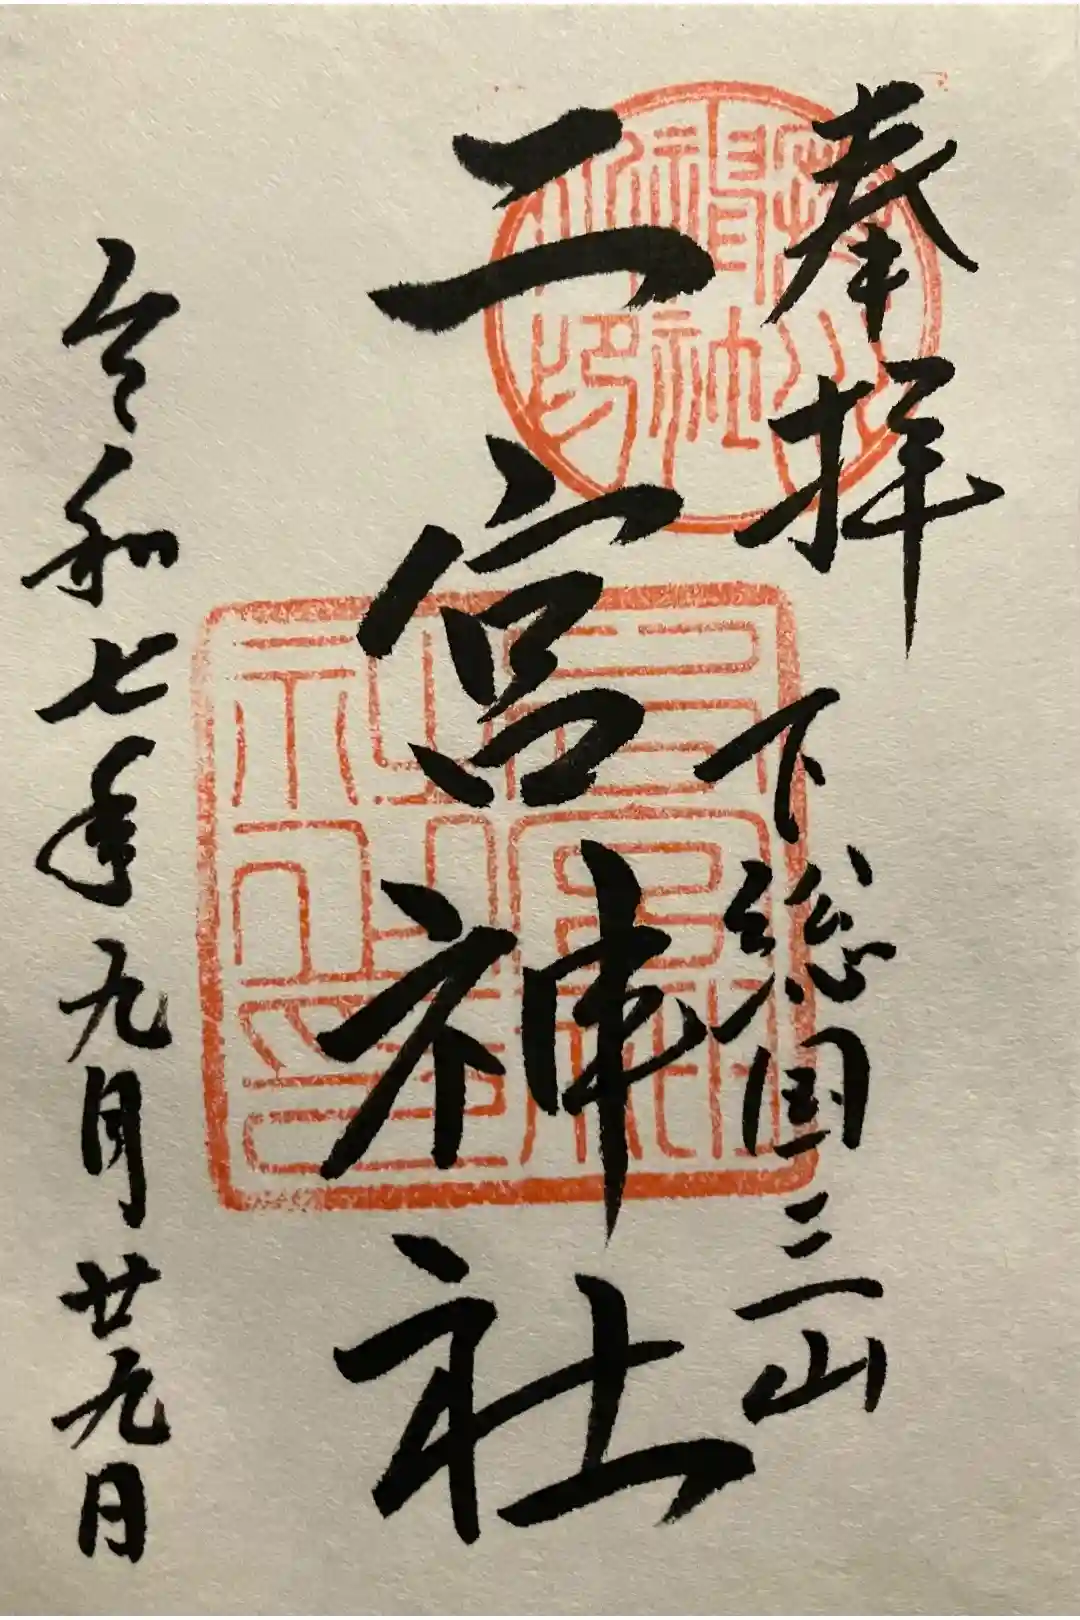 奉拝 下総国三山
二宮神社
令和七年九月廿九日